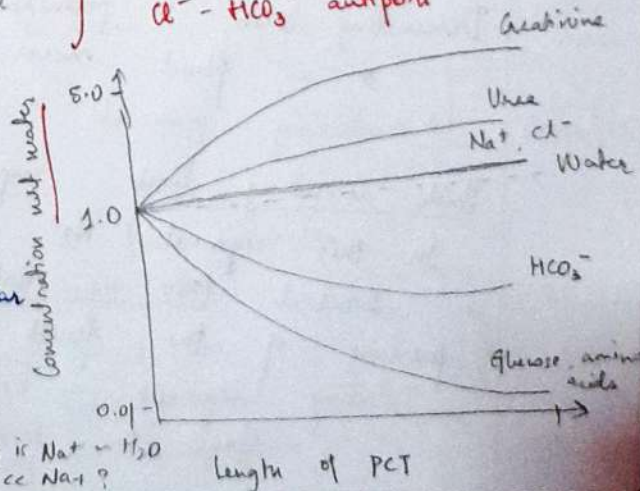 Cl⁻ - HCO₃ antiport
Creatinine
5.0
Urea
Na⁺, Cl⁻
Water
Concentration wrt water
1.0
HCO₃⁻
Glucose, amino
acids
0.01
is Na⁺ ~ H₂O
Length of PCT